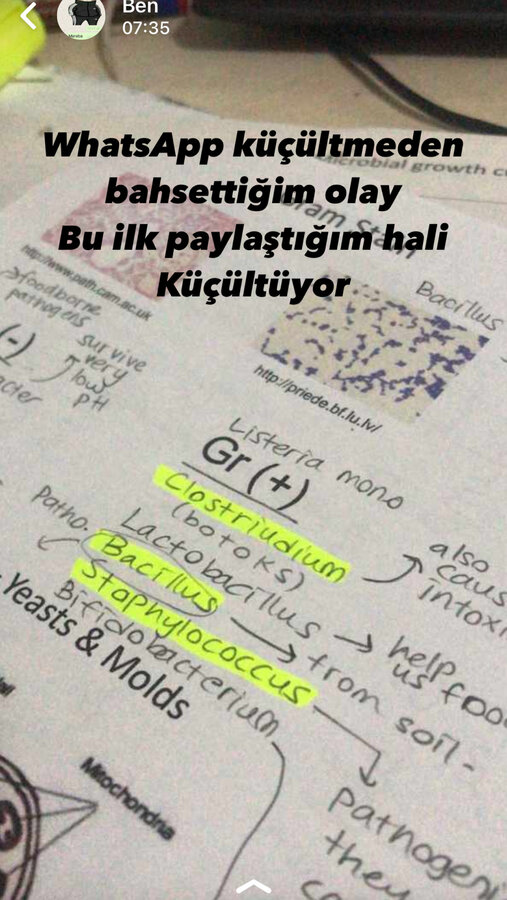 Ben
07:35
WhatsApp küçültmeden
bahsettiğim olay
Bu ilk paylaştığım hali
Küçültüyor
microbial growth
Gram Stain
http://www.path.cam.ac.uk
Bacillus
http://priede.bf.lu.lv/
foodborne
pathogens
(-)
survive
very
low
pH
Listeria mono
Gr (+)
Clostriudium
(botoks)
also
Patho.
Lactobacillus
help
us
Bacillus
from soil
Staphylococcus
Bifidobacterium
Yeasts & Molds
Mitochondria
they